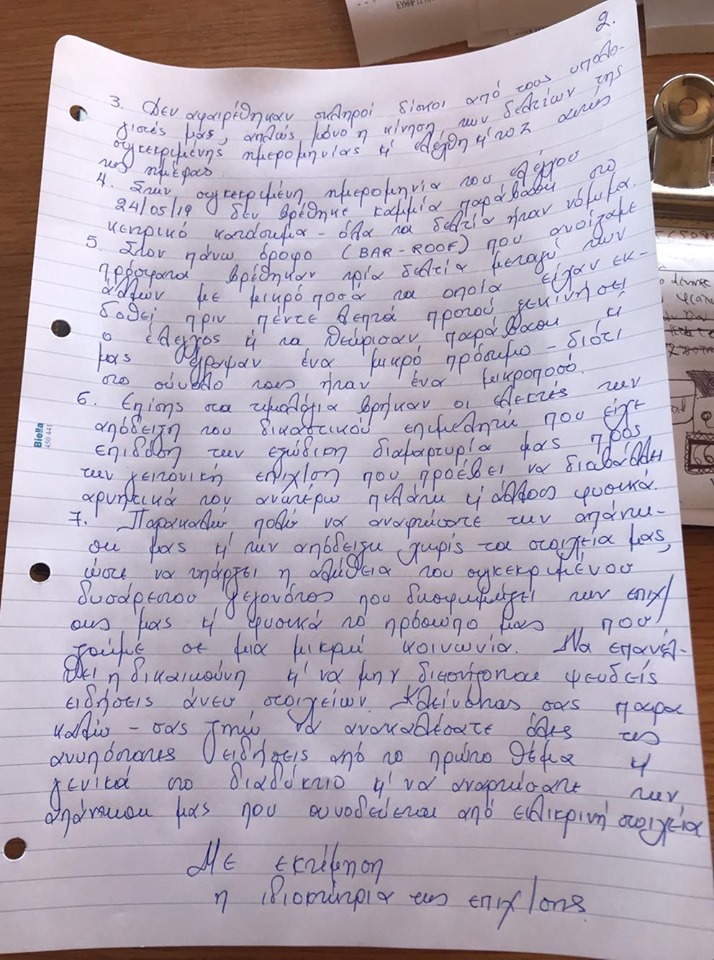 2.
3. Δεν αφαιρέθηκαν σκληροί δίσκοι από τους υπολο-
γιστές μας, απλώς μόνο η κίνηση των δελτίων της
συγκεκριμένης ημερομηνίας κ' ελέχθη κ' το Ζ αυτής
της ημέρας
4. Στην συγκεκριμένη ημερομηνία του ελέγχου
24/05/19 δεν βρέθηκε καμμία παράβαση στο
κεντρικό κατάστημα - όλα τα δελτία ήταν νόμιμα.
5. Στον πάνω όροφο (BAR-ROOF) που ανοίξαμε
πρόσφατα βρέθηκαν τρία δελτία μεταξύ των
άλλων με μικρό ποσό τα οποία είχαν εκ-
δοθεί πριν πέντε λεπτά προτού ξεκινήσει
ο έλεγχος κ' τα θεώρησαν παράβαση κ'
μας έγραψαν ένα μικρό πρόστιμο - διότι
στο σύνολο τους ήταν ένα μικροποσό.
6. Επίσης στα τιμολόγια βρήκαν οι ελεκτές την
απόδειξη του δικαστικού επιμελητή που είχε
επιδόση την εξώδικη διαμαρτυρία μας προς
την γειτονική επιχ/ση που προέβει να διαβάλλει
αρνητικά τον ανωτέρω πελάτη κ' άλλους φυσικά.
7. Παρακαλώ πολύ να αναρτώσατε την απάντη-
ση μας κ' την απόδειξη χωρίς τα στοιχεία μας,
ώστε να υπάρχει η αλήθεια του συγκεκριμένου
δυσάρεστου γεγονότος που δυσφημίζει την επιχ/
σης μας κ' φυσικά το πρόσωπο μας που
ζούμε σε μια μικρή κοινωνία. Να επανέλ-
θει η δικαιοσύνη κ' να μην διεσπίζονται ψευδείς
ειδήσεις άνευ στοιχείων. Κλείνοντας σας παρα
καλώ - σας ζητώ να ανακαλέσατε όλες τις
ανυπόστατες ειδήσεις από το πρώτο θέμα κ'
γενικά στο διαδύκτιο κ' να αναρτίσατε την
απάντηση μας που συνοδεύεται από ειλικρινή στοιχεία
Με εκτίμηση
η ιδιοκτήτρια της επιχ/σης
Biella